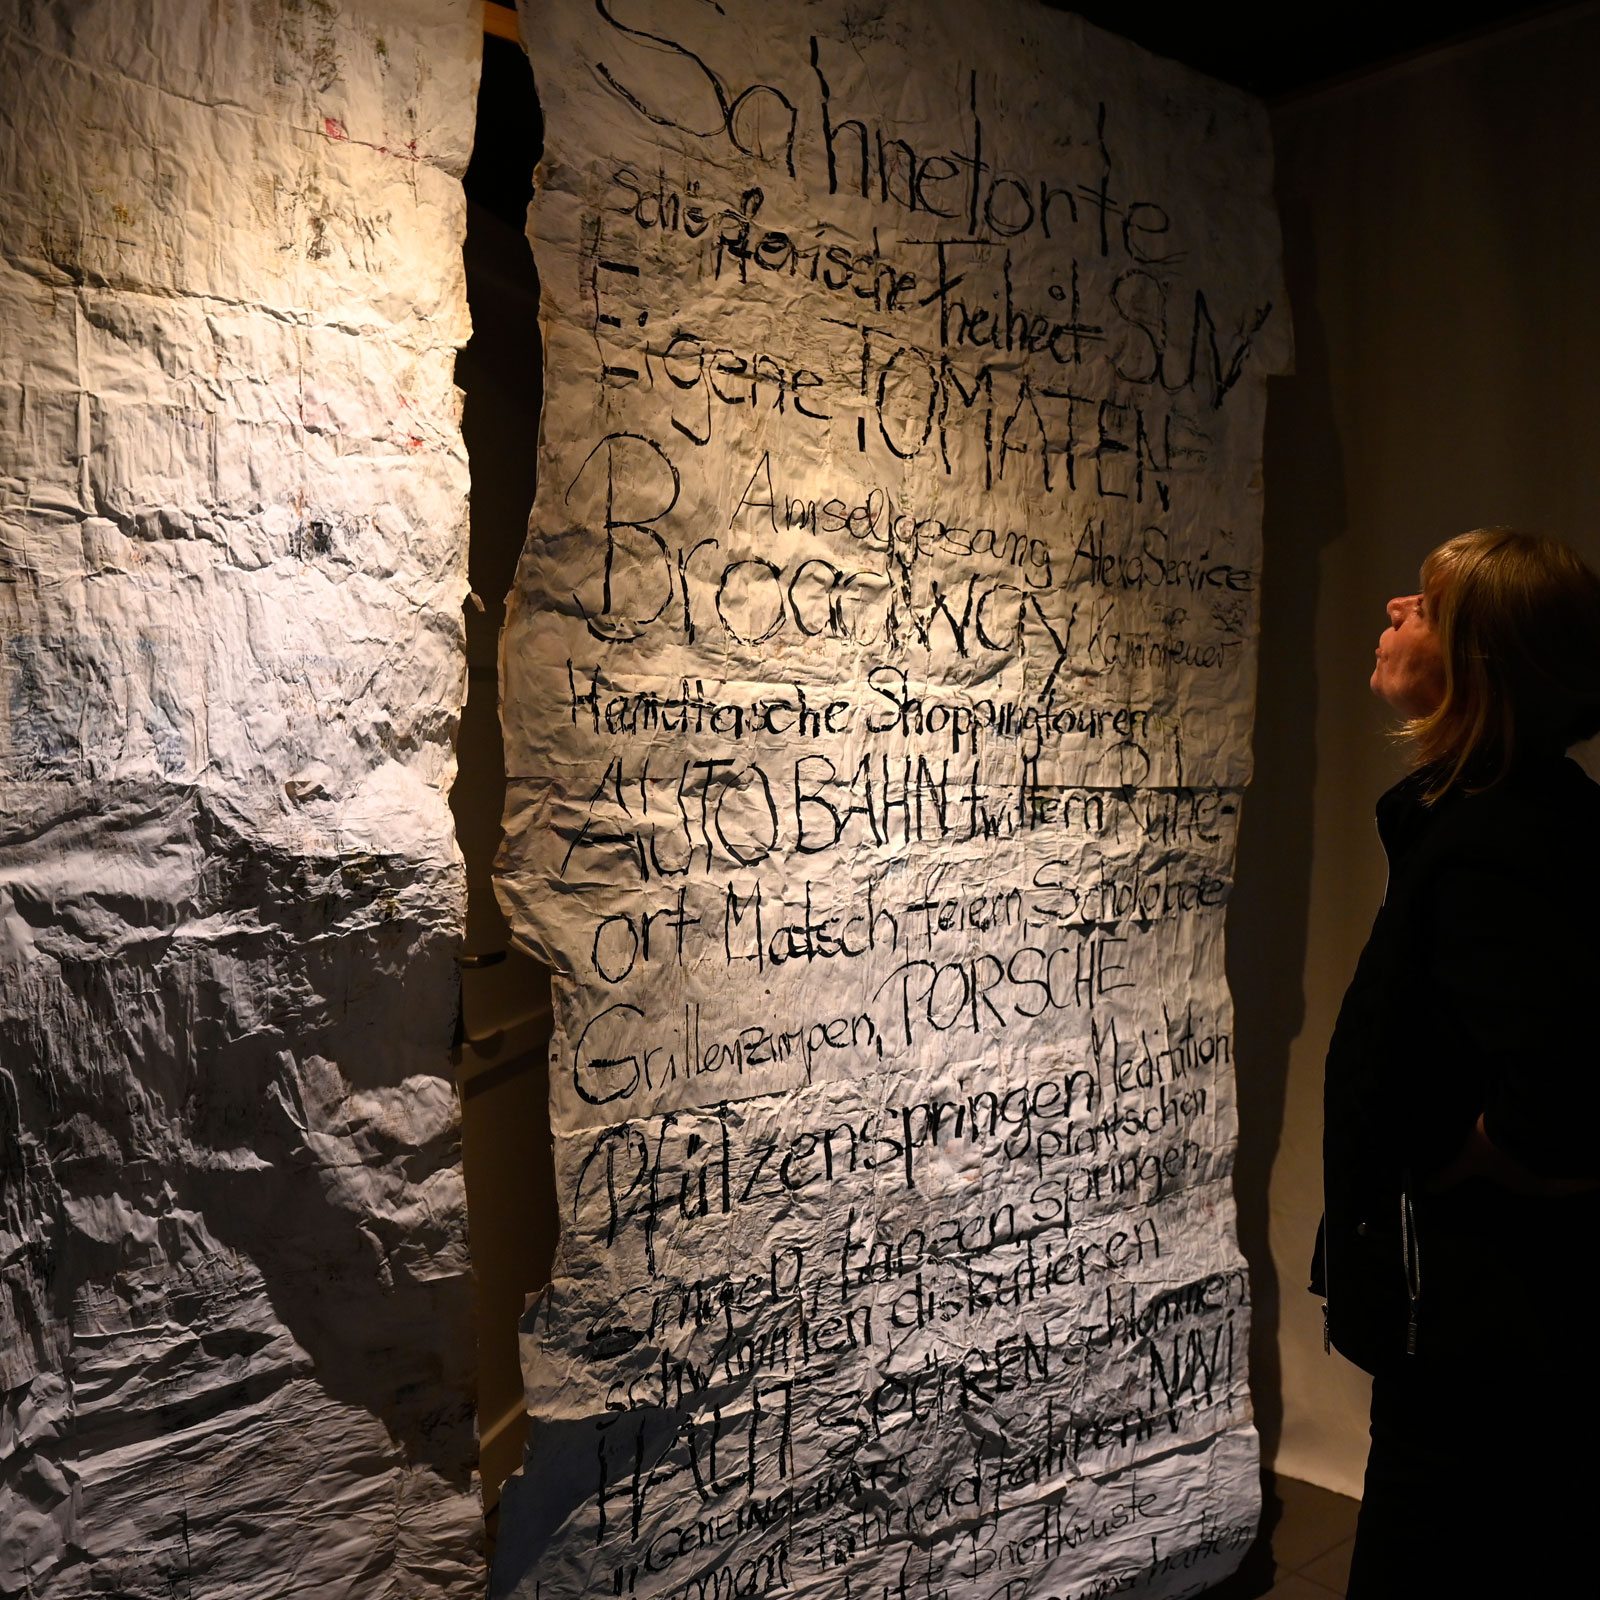 Sahnetorte
Schöpferische Freiheit SUV
Eigene TOMATEN
Amselgesang AlexaService
Broadway Kaminfeuer
Handtasche Shoppingtouren
AUTOBAHN twittern Ruhe-
ort Matsch feiern, Schokolade
Grillenzirpen, PORSCHE
Pfützenspringen Meditation
platschen
singen, tanzen, springen
schwimmen diskutieren
HAUT SPÜREN schlemmen
GEMEINSCHAFT NAVI
Fahrradfahren
Brotkruste